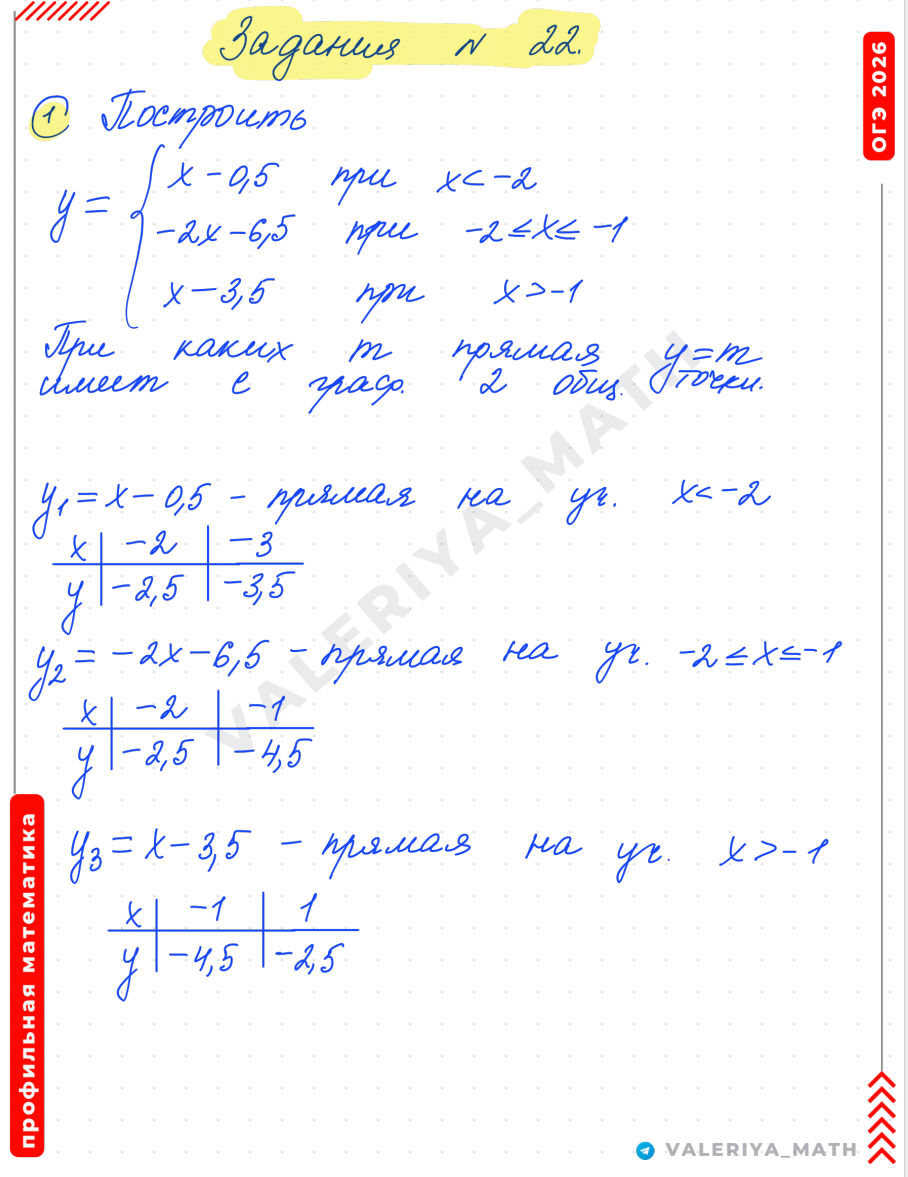 Задания N 22.
ОГЭ 2026
1 Построить
y = { x - 0,5 при x < -2
-2x - 6,5 при -2 ≤ x ≤ -1
x - 3,5 при x > -1
При каких m прямая y = m
имеет с граф. 2 общ. точки.
y₁ = x - 0,5 - прямая на уч. x < -2
x | -2 | -3
y | -2,5 | -3,5
y₂ = -2x - 6,5 - прямая на уч. -2 ≤ x ≤ -1
x | -2 | -1
y | -2,5 | -4,5
y₃ = x - 3,5 - прямая на уч. x > -1
x | -1 | 1
y | -4,5 | -2,5
профильная математика
VALERIYA_MATH
VALERIYA_MATH